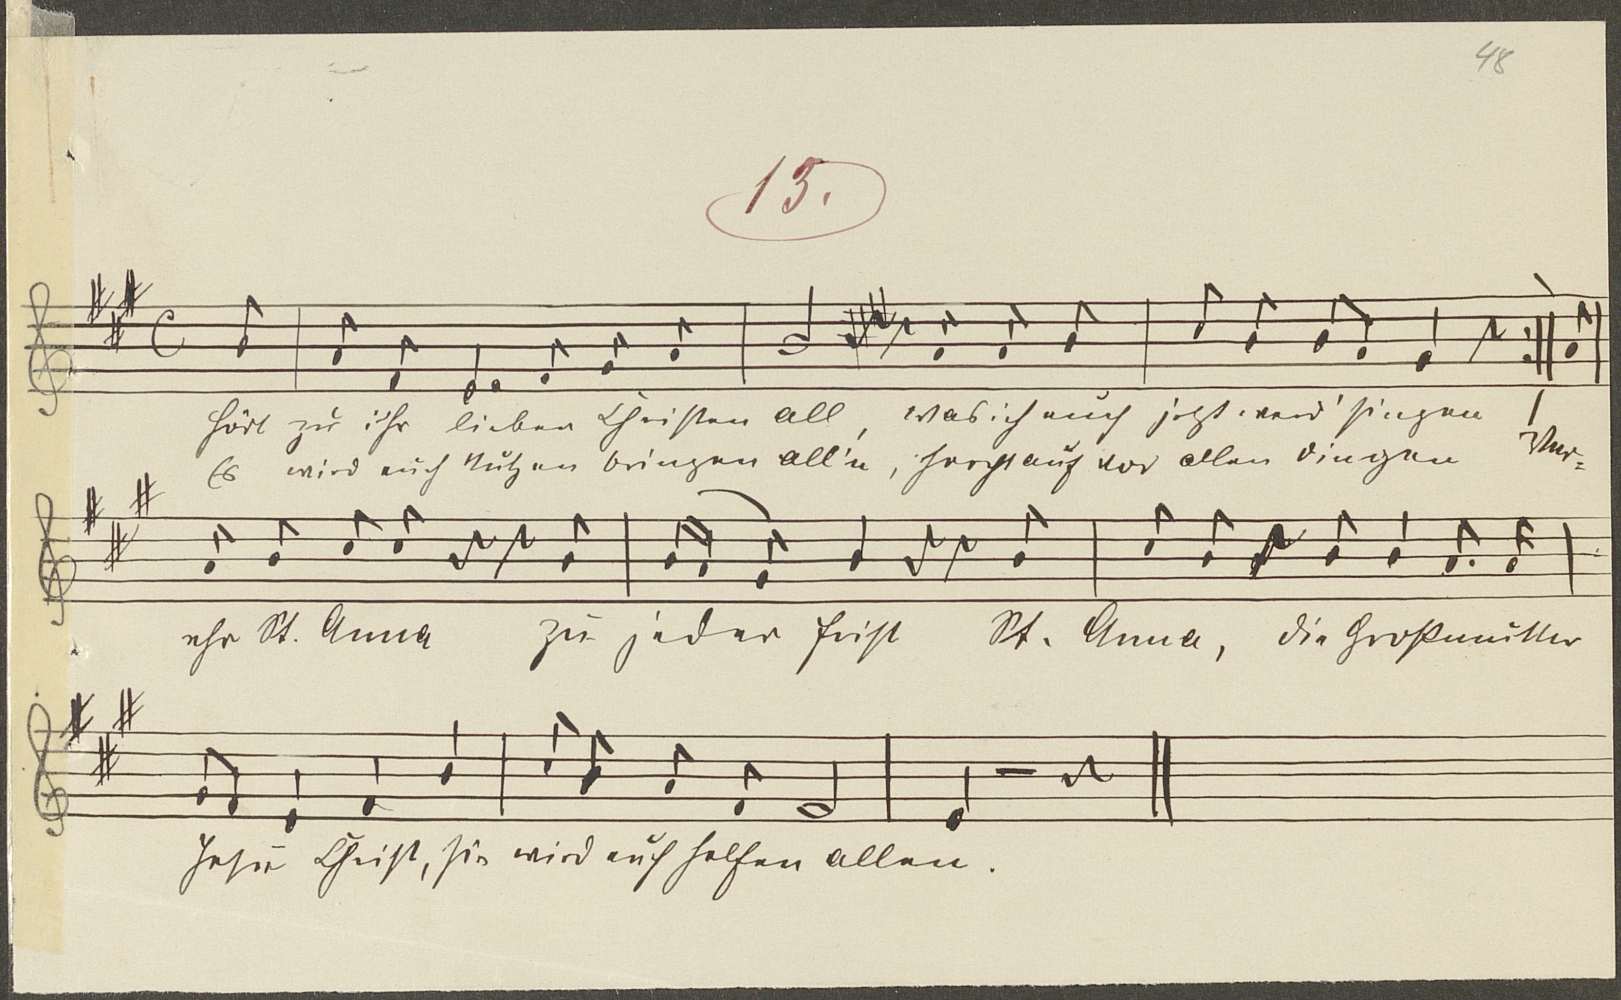 48
13.
Hört zu ihr lieben Christen all, was ich euch jetzt werd' singen
Es wird euch Nutzen bringen all'n, horcht auf vor allen dingen Ver=
ehr St. Anna zu jeder Frist St. Anna, die Großmutter
Jesu Christ, sie wird euch helfen allen.